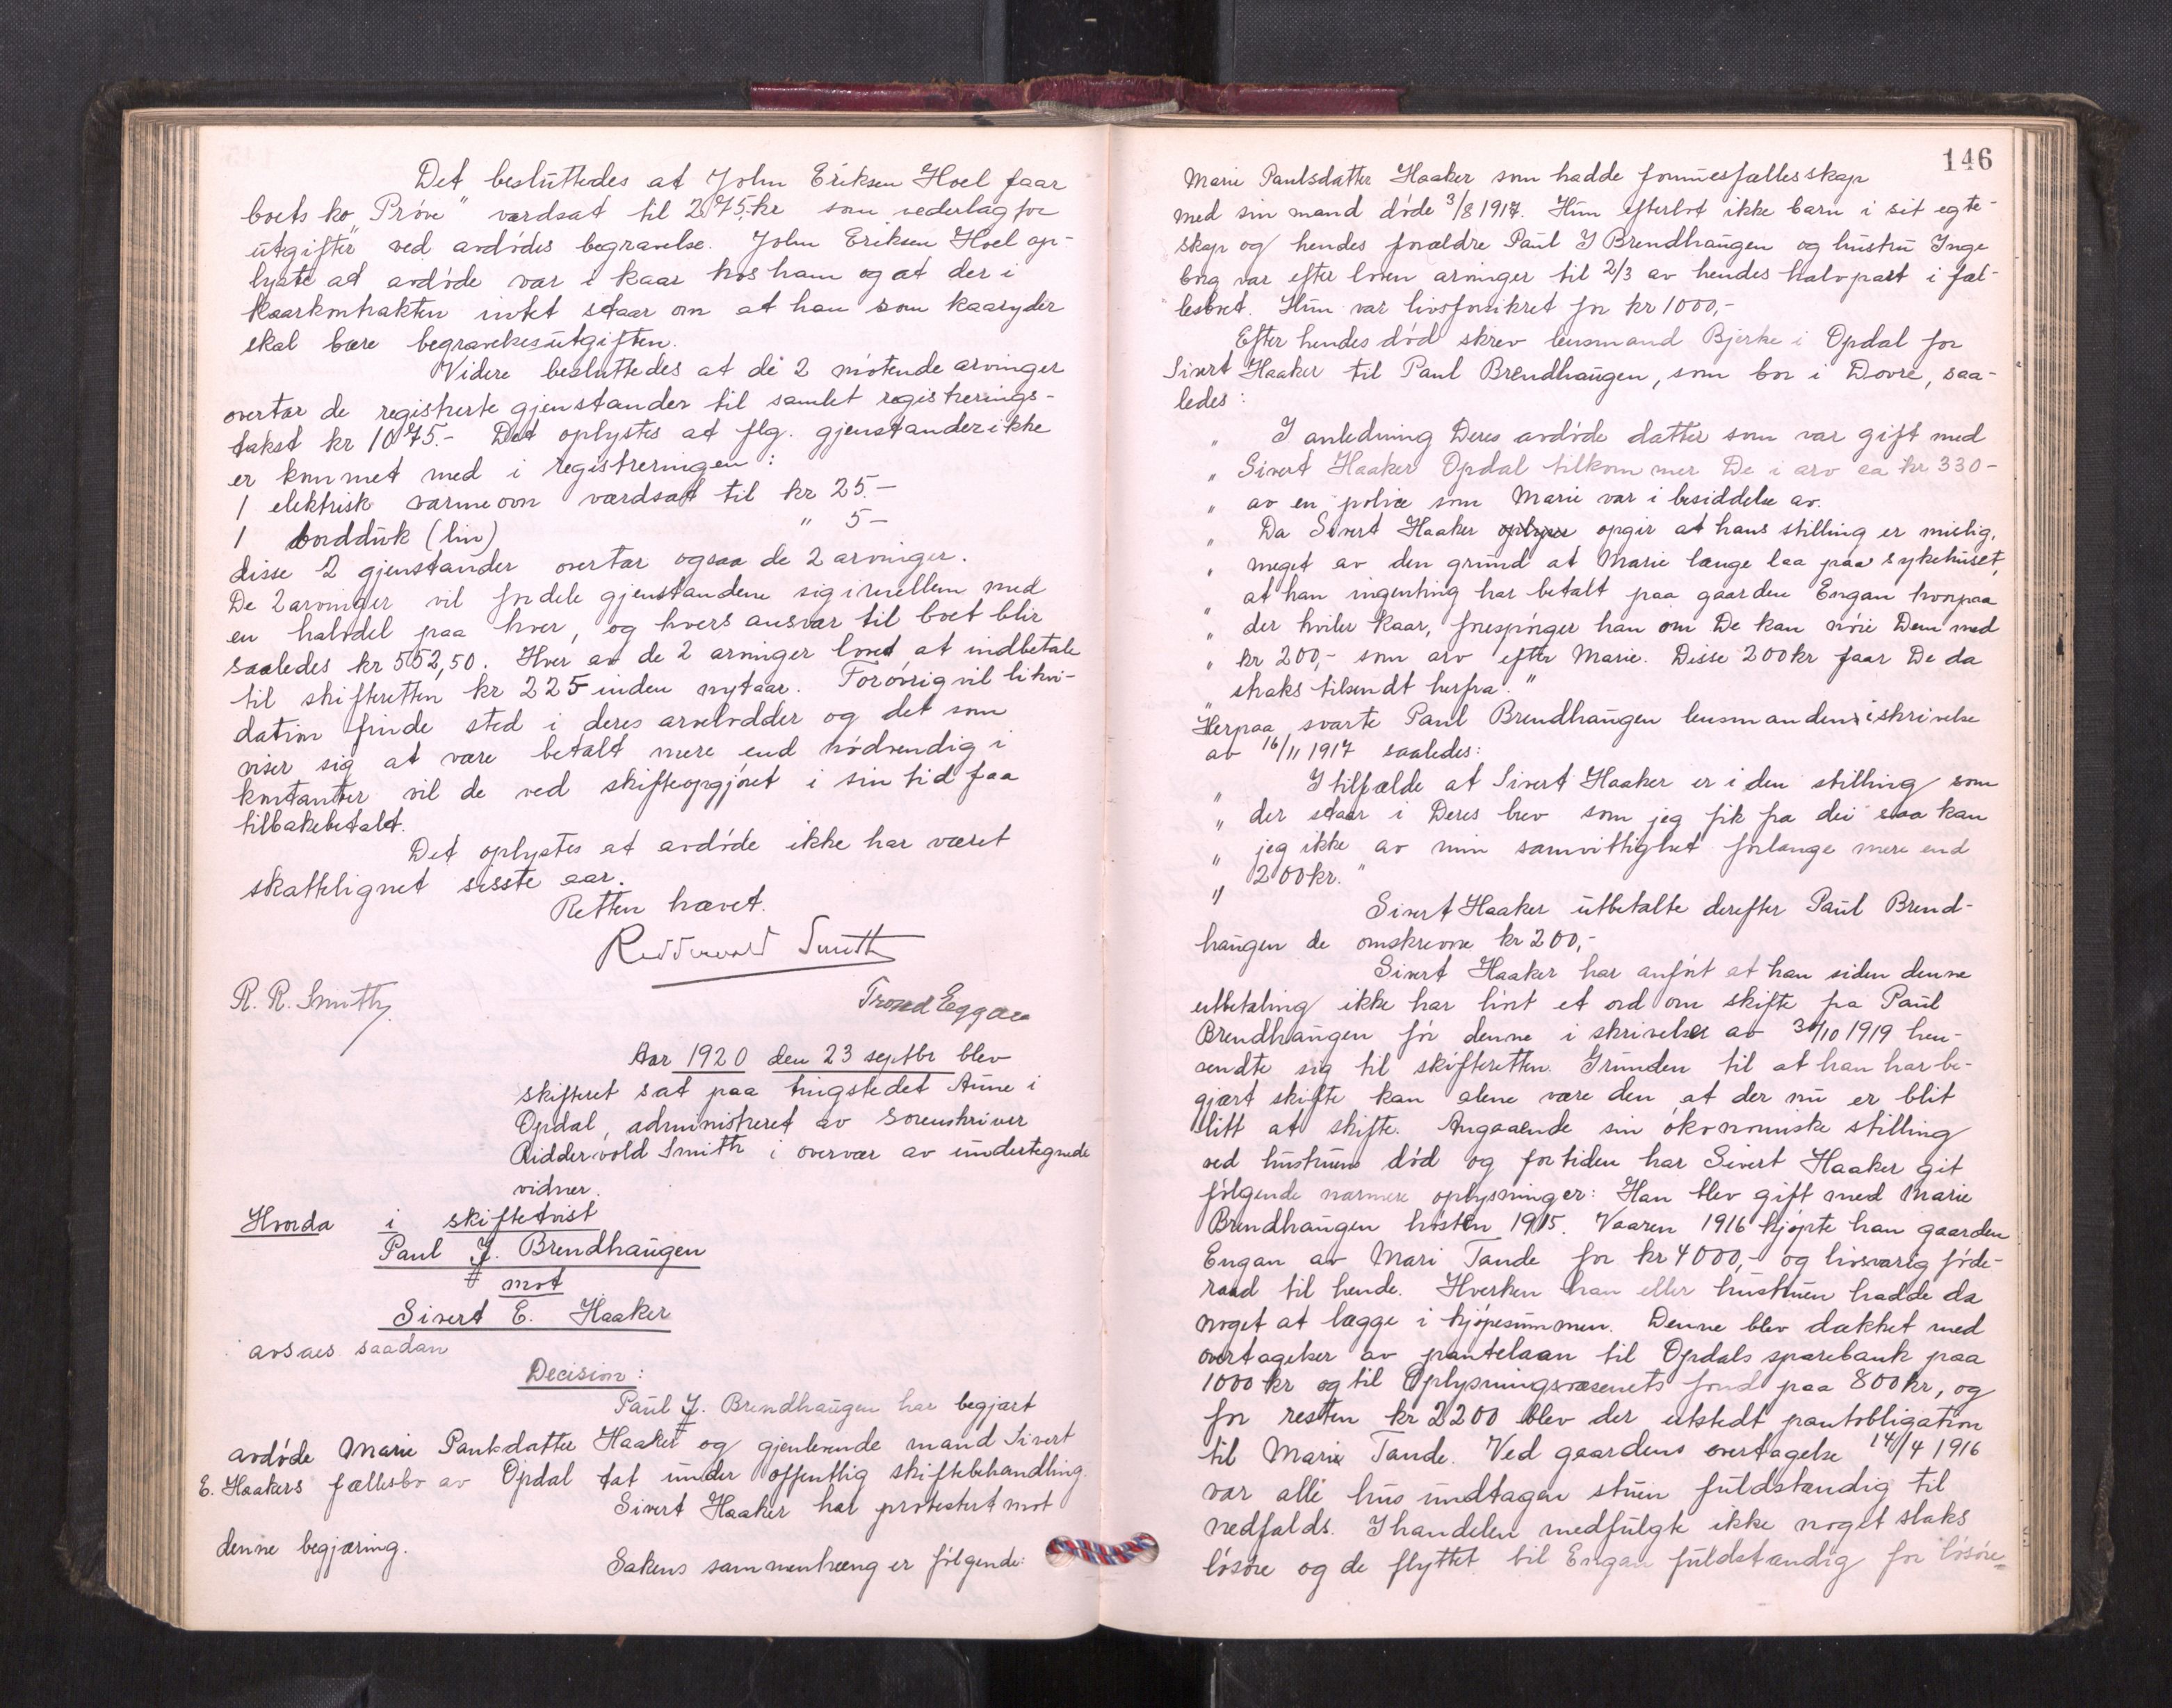 Det besluttedes at John Eriksen Hoel faar
boets ko "Prøve" værdsat til 275,kr som vederlag for
utgifter ved avdødes begravelse. John Eriksen Hoel op-
lyste at avdøde var i kaar hos ham og at der i
kaarkontrakten intet staar om at han som kaaryder
skal bære begravelsesutgiften.
Videre besluttedes at de 2 møtende arvinger
overtar de registrerte gjenstander til samlet registrerings-
takst kr 1075.- Det oplystes at flg. gjenstander ikke
er kommet med i registreringen:
1 elektrisk varmeovn værdsat til kr 25.-
1 borddúk (lin) " 5-
disse 2 gjenstander overtar ogsaa de 2 arvinger.
De 2 arvinger vil fordele gjenstandene sig imellem med
en halvdel paa hver, og hvers ansvar til boet blir
saaledes kr 552,50. Hver av de 2 arvinger lovet at indbetale
til skifteretten kr 225 inden nytaar. Forøvrig vil likvi-
dation finde sted i deres arvelodder og det som
viser sig at være betalt mere end nødvendig i
kontanter vil de ved skifteopgjøret i sin tid faa
tilbakebetalt.
Det oplystes at avdøde ikke har været
skattelignet sisste aar.
Retten hævet.
Riddervold Smith
R. R. Smith. Trond Eggen
Aar 1920 den 23 septbr blev
skifteret sat paa tingstedet Aune i
Opdal, administreret av sorenskriver
Riddervold Smith i overvær av undertegnede
vidner.
Hvorda i skiftetvist
Paul J. Brendhaugen
mot
Sivert E. Haaker
avsaes saadan
Decision:
Paul J. Brendhaugen har begjært
avdøde Marie Paulsdatter Haaker og gjenlevende mand Sivert
E. Haakers fællesbo av Opdal tat under offentlig skiftebehandling.
Sivert Haaker har protestert mot
denne begjæring.
Sakens sammenhæng er følgende:
146
Marie Paulsdatter Haaker som hadde formuesfællesskap
med sin mand døde 3/8 1917. Hun efterlot ikke barn i sit egte-
skap og hendes forældre Paul J Brendhaugen og hustru Inge
borg var efter loven arvinger til 2/3 av hendes halvpart i fæl-
lesboet. Hun var livsforsikret for kr 1000,-
Efter hendes død skrev lensmand Bjerke i Opdal for
Sivert Haaker til Paul Brendhaugen, som bor i Dovre, saa-
ledes:
" I anledning Deres avdøde datter som var gift med
" Sivert Haaker Opdal tilkommer De i arv ca kr 330-
" av en police som Marie var i besiddelse av.
" Da Sivert Haaker oplyser opgir at hans stilling er mislig,
" meget av den grund at Marie længe laa paa sykehuset,
" at han ingenting har betalt paa gaarden Engan hvorpaa
" der hviler kaar, forespørger han om De kan nøie Dem med
" kr 200,- som arv efter Marie. Disse 200 kr faar De da
" straks tilsendt herfra."
Herpaa svarte Paul Brendhaugen lensmanden i skrivelse
av 16/11 1917 saaledes:
" I tilfælde at Sivert Haaker er i den stilling som
" der staar i Deres brev som jeg fik fra dei saa kan
" jeg ikke av min samvittighet forlange mere end
" 200 kr."
Sivert Haaker utbetalte derefter Paul Brend-
haugen de omskrevne kr 200,-
Sivert Haaker har anført at han siden denne
utbetaling ikke har hørt et ord om skifte fra Paul
Brendhaugen før denne i skrivelse av 30/10 1919 hen-
vendte sig til skifteretten. Grunden til at han har be-
gjært skifte kan alene være den, at der nu er blit
litt at skifte. Angaaende sin økonomiske stilling
ved hustruens død og for tiden har Sivert Haaker git
følgende nærmere oplysninger: Han blev gift med Marie
Brendhaugen høsten 1915. Vaaren 1916 kjøpte han gaarden
Engan av Mari Tande for kr 4000,- og livsvarig føde-
raad til hende. Hverken han eller hustruen hadde da
noget at lægge i kjøpesummen. Denne blev dækket med
overtagelser av pantelaan til Opdals sparebank paa
1000 kr og til Oplysningsvæsenets fond paa 800 kr, og
for resten kr 2200 blev der utstedt pantobligation
til Mari Tande. Ved gaardens overtagelse 14/4 1916
var alle hus undtagen stuen fuldstændig til
nedfalds. I handelen medfulgte ikke noget slaks
løsøre og de flyttet til Engan fuldstændig for løsøre=